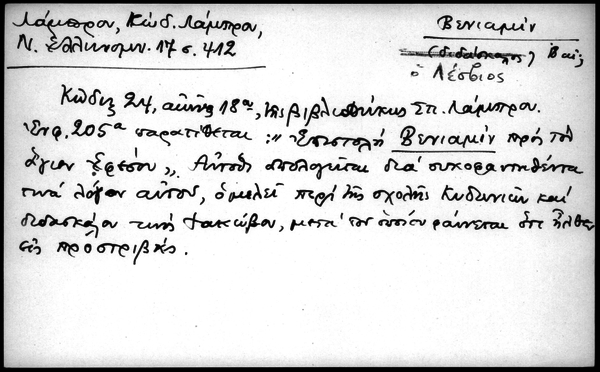 Λάμπρου, Κώδ. Λάμπρου,
Ν. Ἑλληνομν. 17 σ. 412
Βενιαμὶν
(διδάσκαλος)
ὁ Λέσβιος
Κῶδιξ 24, αἰῶνος 18ου, τῆς βιβλιοθήκης Σπ. Λάμπρου.
Ἐν φ. 205α παρατίθεται: "Ἐπιστολὴ Βενιαμὶν πρὸς τὸν
ἅγιον Ἐφέσου". Αὐτόθι ἀπολογεῖται διὰ συκοφαντηθέντα
τινὰ λόγον αὐτοῦ, ὁμιλεῖ περὶ τῆς σχολῆς Κυδωνιῶν καὶ
διδασκάλου τινὸς Ἰακώβου, μετὰ τοῦ ὁποίου φαίνεται ὅτι ἦλθεν
εἰς προστριβάς.